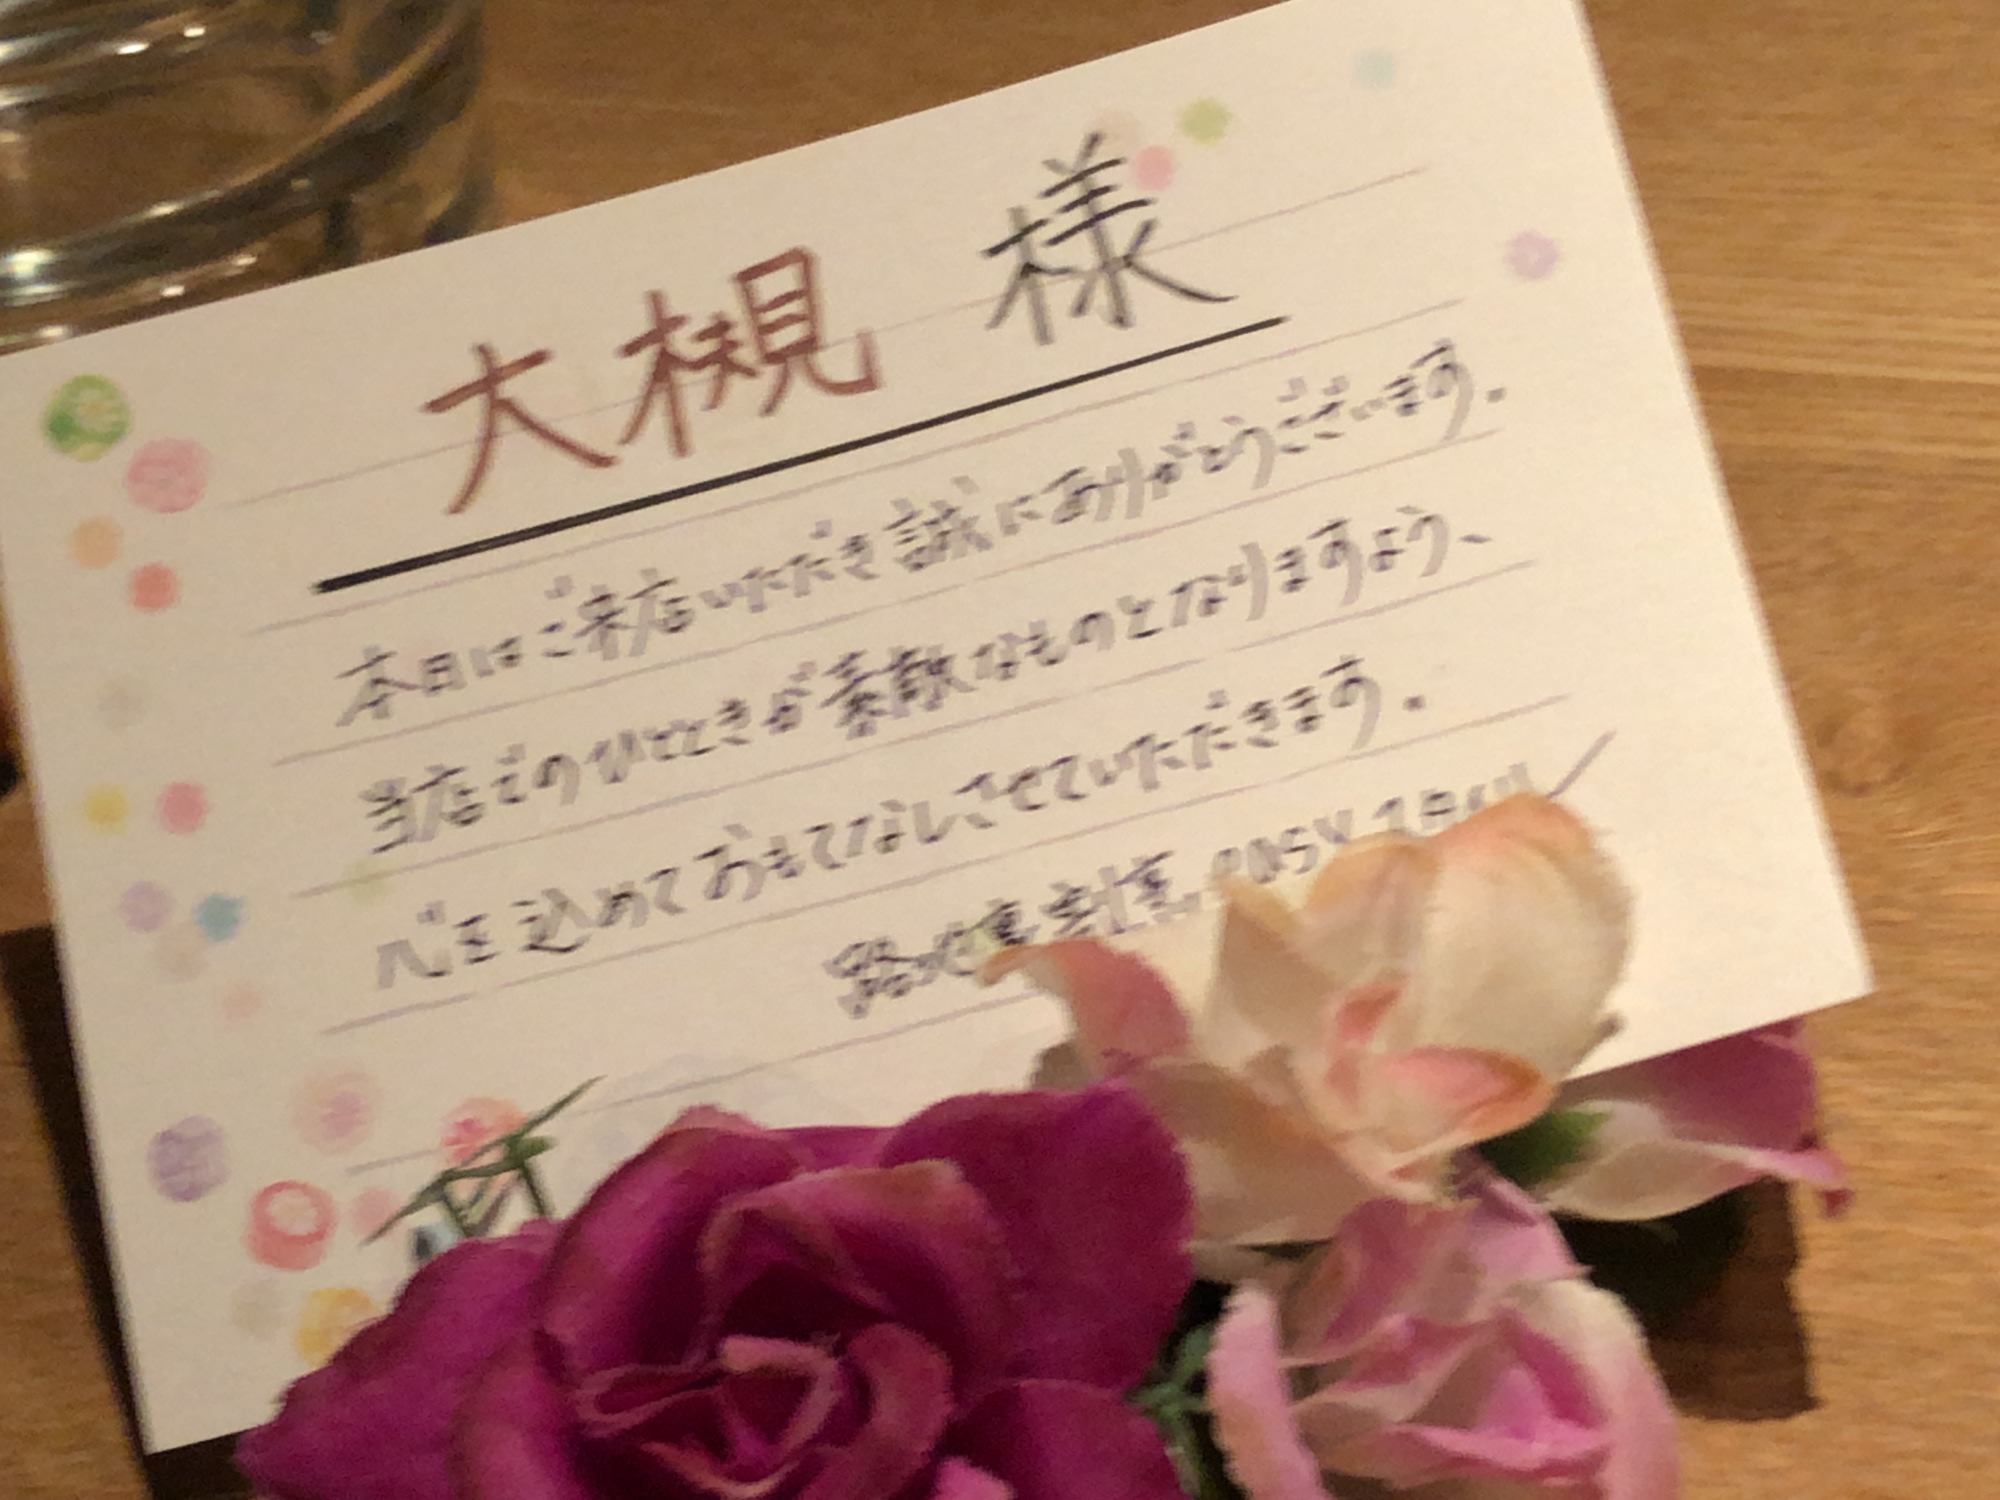 大槻 様
本日はご来店いただき誠にありがとうございます.
当店でのひとときが素敵なものとなりますよう、
心を込めておもてなしさせていただきます.
路地裏